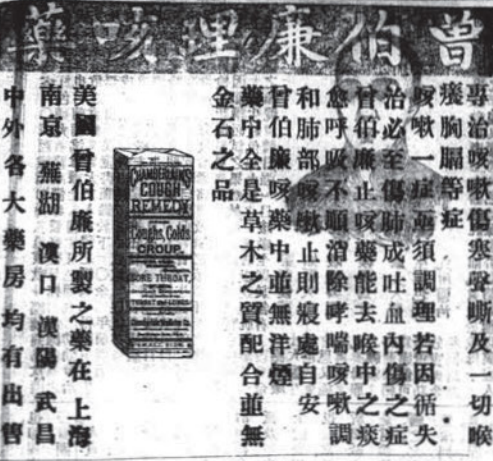 曾伯廉理咳藥
專治咳嗽傷寒聲嘶及一切喉
癢胸膈等症
咳嗽一症亟須調理若因循失
治必至傷肺成吐血內傷之症
曾伯廉止咳藥能去喉中之痰
愈呼吸不順消除哮喘咳嗽調
和肺部咳嗽止則寢處自安
曾伯廉咳藥中並無洋煙
藥中全是草木之質配合並無
金石之品
CHAMBERLAIN'S
COUGH
REMEDY
Coughs, Colds
CROUP,
SORE THROAT,
美國曾伯廉所製之藥在上海
南京 蕪湖 漢口 漢陽 武昌
中外各大藥房均有出售